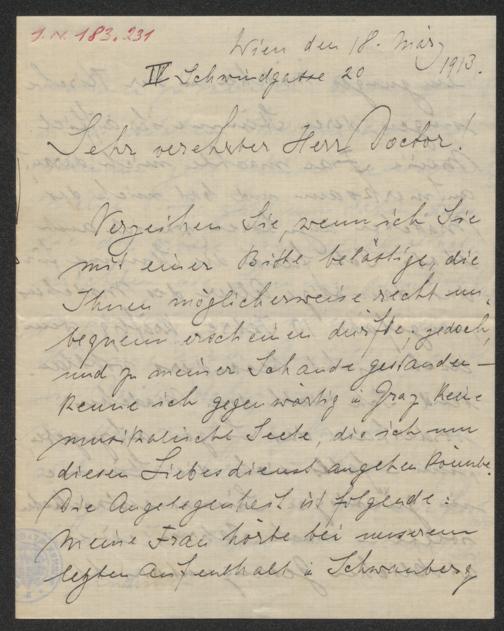 I. N. 183.231
Wien den 18. März
1913.
IV Schwindgasse 20
Sehr verehrter Herr Doctor!
Verzeihen Sie, wenn ich Sie
mit einer Bitte belästige, die
Ihnen möglicherweise recht un-
bequem erscheinen dürfte; jedoch,
und zu meiner Schande gestanden –
kenne ich gegenwärtig in Graz keine
musikalische Seele, die ich um
diesen Liebesdienst angehen könnte.
Die Angelegenheit ist folgende:
Meine Frau hörte bei unserem
letzten Aufenthalt in Schwanberg